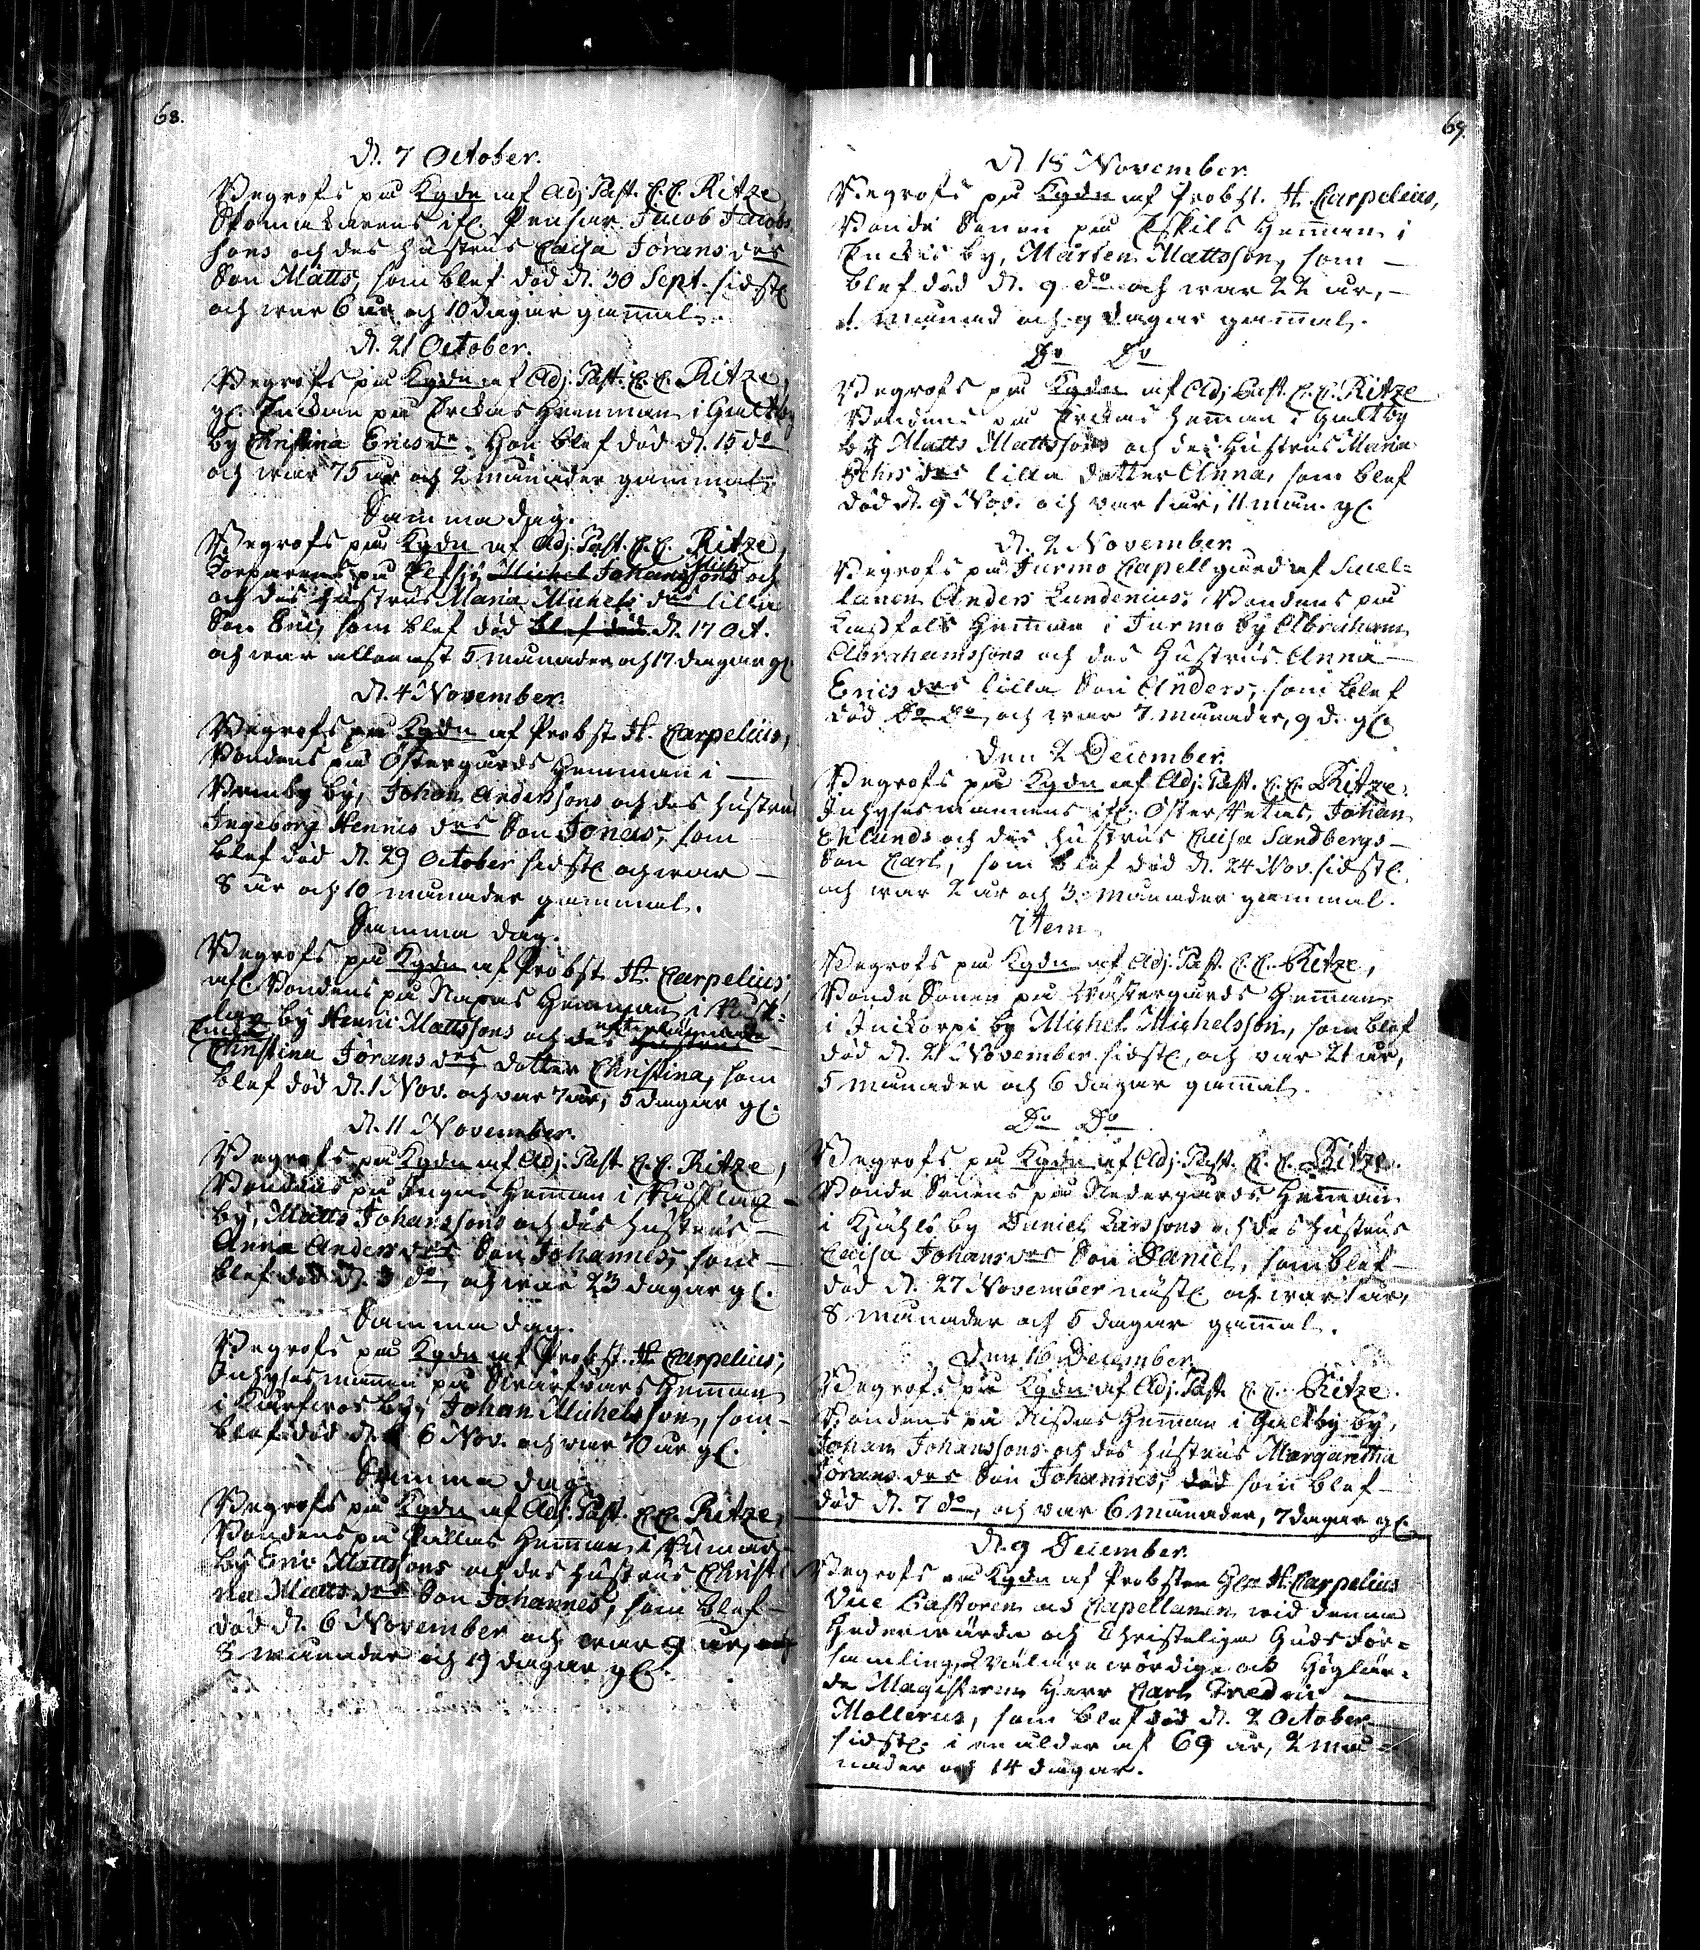 68.
d. 7 October.
Begrofs på Kgdn af Adj. Past. C.C. Ritze,
Jacob Jacobs
sons och des hustrus Caisa Jörans drs
Son Matts, som blef död d. 30 Sept. sidstl.
och war 6 år och 10 dagar gammal.
d. 21 October.
Begrofs på Kgdn af Adj. Past. C.C. Ritze,
gl. Enckan på Erickas Hemman i Galtby
by Christina Ericsdr. Hon blef död d. 15 do
och war 75 år och 2 månader gammal.
Samma dag.
Begrofs på Kgdn af Adj. Past. C.C. Ritze,
Torparens på Johanssons och
och des hustrus Maria Michels drs lilla
Son Eric, som blef död blef död d. 17 Oct.
och war allenast 5 månader och 17 dagar gl.
d. 4 November.
Begrofs på Kgdn af Probst H. Carpelius,
Bondens på Östergårds Hemman i
by, Johan Anderssons och des hustrus
Ingeborg Henrics drs Son Jonas, som
blef död d. 29 October sidstl. och war
8 år och 10 månader gammal.
Samma dag.
Begrofs på Kgdn af Probst H. Carpelius,
afl. Bondens på Hemman i
by Henric Mattssons och des efterlämnade hustrus
Encka
Christina Jörans drs dotter Christina, som
blef död d. 1 Nov. och var 7 år, 5 dagar gl.
d. 11 November.
Begrofs på Kgdn af Adj. Past. C.C. Ritze,
Bondens på Hemman i
by, Matts Johanssons och des hustrus
Anna Anders drs Son Johannes, som
blef död d. 3 do, och war 23 dagar gl.
Samma dag.
Begrofs på Kgdn af Probst. H. Carpelius,
Inhysesmannen på Hemman
i by, Johan Michelsson, som
blef död d. 6 Nov. och war 70 år gl.
Samma dag
Begrofs på Kgdn af Adj. Past. C.C. Ritze,
Bondens på Hemman i
by Eric Mattssons och des hustrus Christi
na Matts drs Son Johannes, som blef
död d. 6 November och war 9 år,
8 månader och 19 dagar gl.
69.
d. 18 November.
Begrofs på Kgdn af Probst. H. Carpelius,
Bonde Sonen på Eskils Hemman i
by, Mårten Mattsson, som
blef död d. 9 do och war 22 år,
1 månad och 9 dagar gammal.
Do Do
Begrofs på Kgdn af Adj. Past. C.C. Ritze
Bondens på Erickas Hemman i Galtby
by Matts Mattssons och des Hustrus Maria
drs lilla dotter Anna, som blef
död d. 9 Nov. och var 1 år, 11 mån. gl.
d. 2 November
Begrofs på Jurmo Capell gård af Cacel-
lanen Anders Lundenius, Bondens på
Hemman i Jurmo by Abraham
Abrahamssons och des Hustrus Anna
Erics drs lilla Son Anders, som blef
död Do Do, och war 7 månader, 9 d. gl.
Den 2 December.
Begrofs på Kgdn af Adj. Past. C.C. Ritze.
Inhysesmannens Johan
Eklunds och des hustrus Caisa Sandbergs
Son Carl, som blef död d. 24 Nov. sidstl.
och war 2 år och 3 månader gammal.
Item
Begrofs på Kgdn af Adj. Past. C.C. Ritze,
Bonde Sonen på Wästergårds Hemman
i by Michel Michelsson, som blef
död d. 21 November sidstl., och var 21 år,
5 månader och 6 dagar gammal.
Do Do
Begrofs på Kgdn af Adj. Past. C.C. Ritze.
Bonde Sonens på Nedergårds Hemman
i by Daniel Larssons och des hustrus
Caisa Johans drs Son Daniel, som blef
död d. 27 November nästl. och war 1 år,
8 månader och 5 dagar gammal.
Den 16 December
Begrofs på Kgdn af Adj. Past. C.C. Ritze.
Bondens på Hemman i Galtby by,
Johan Johanssons och des hustrus Margaretha
Jörans drs Son Johannes, död som blef
död d. 7 do, och var 6 månader, 7 dagar gl.
d. 9 December.
Begrofs på Kgdn af Probsten H. Carpelius
Vice Pastoren och Capellanen wid denna
och Christeliga Guds För-
samling, wälärewördige och Höglär-
de Magistern Herr Carl Fredric
Mollerus, som blef död d. 2 October
sidstl. i en ålder af 69 år, 2 må-
nader och 14 dagar.